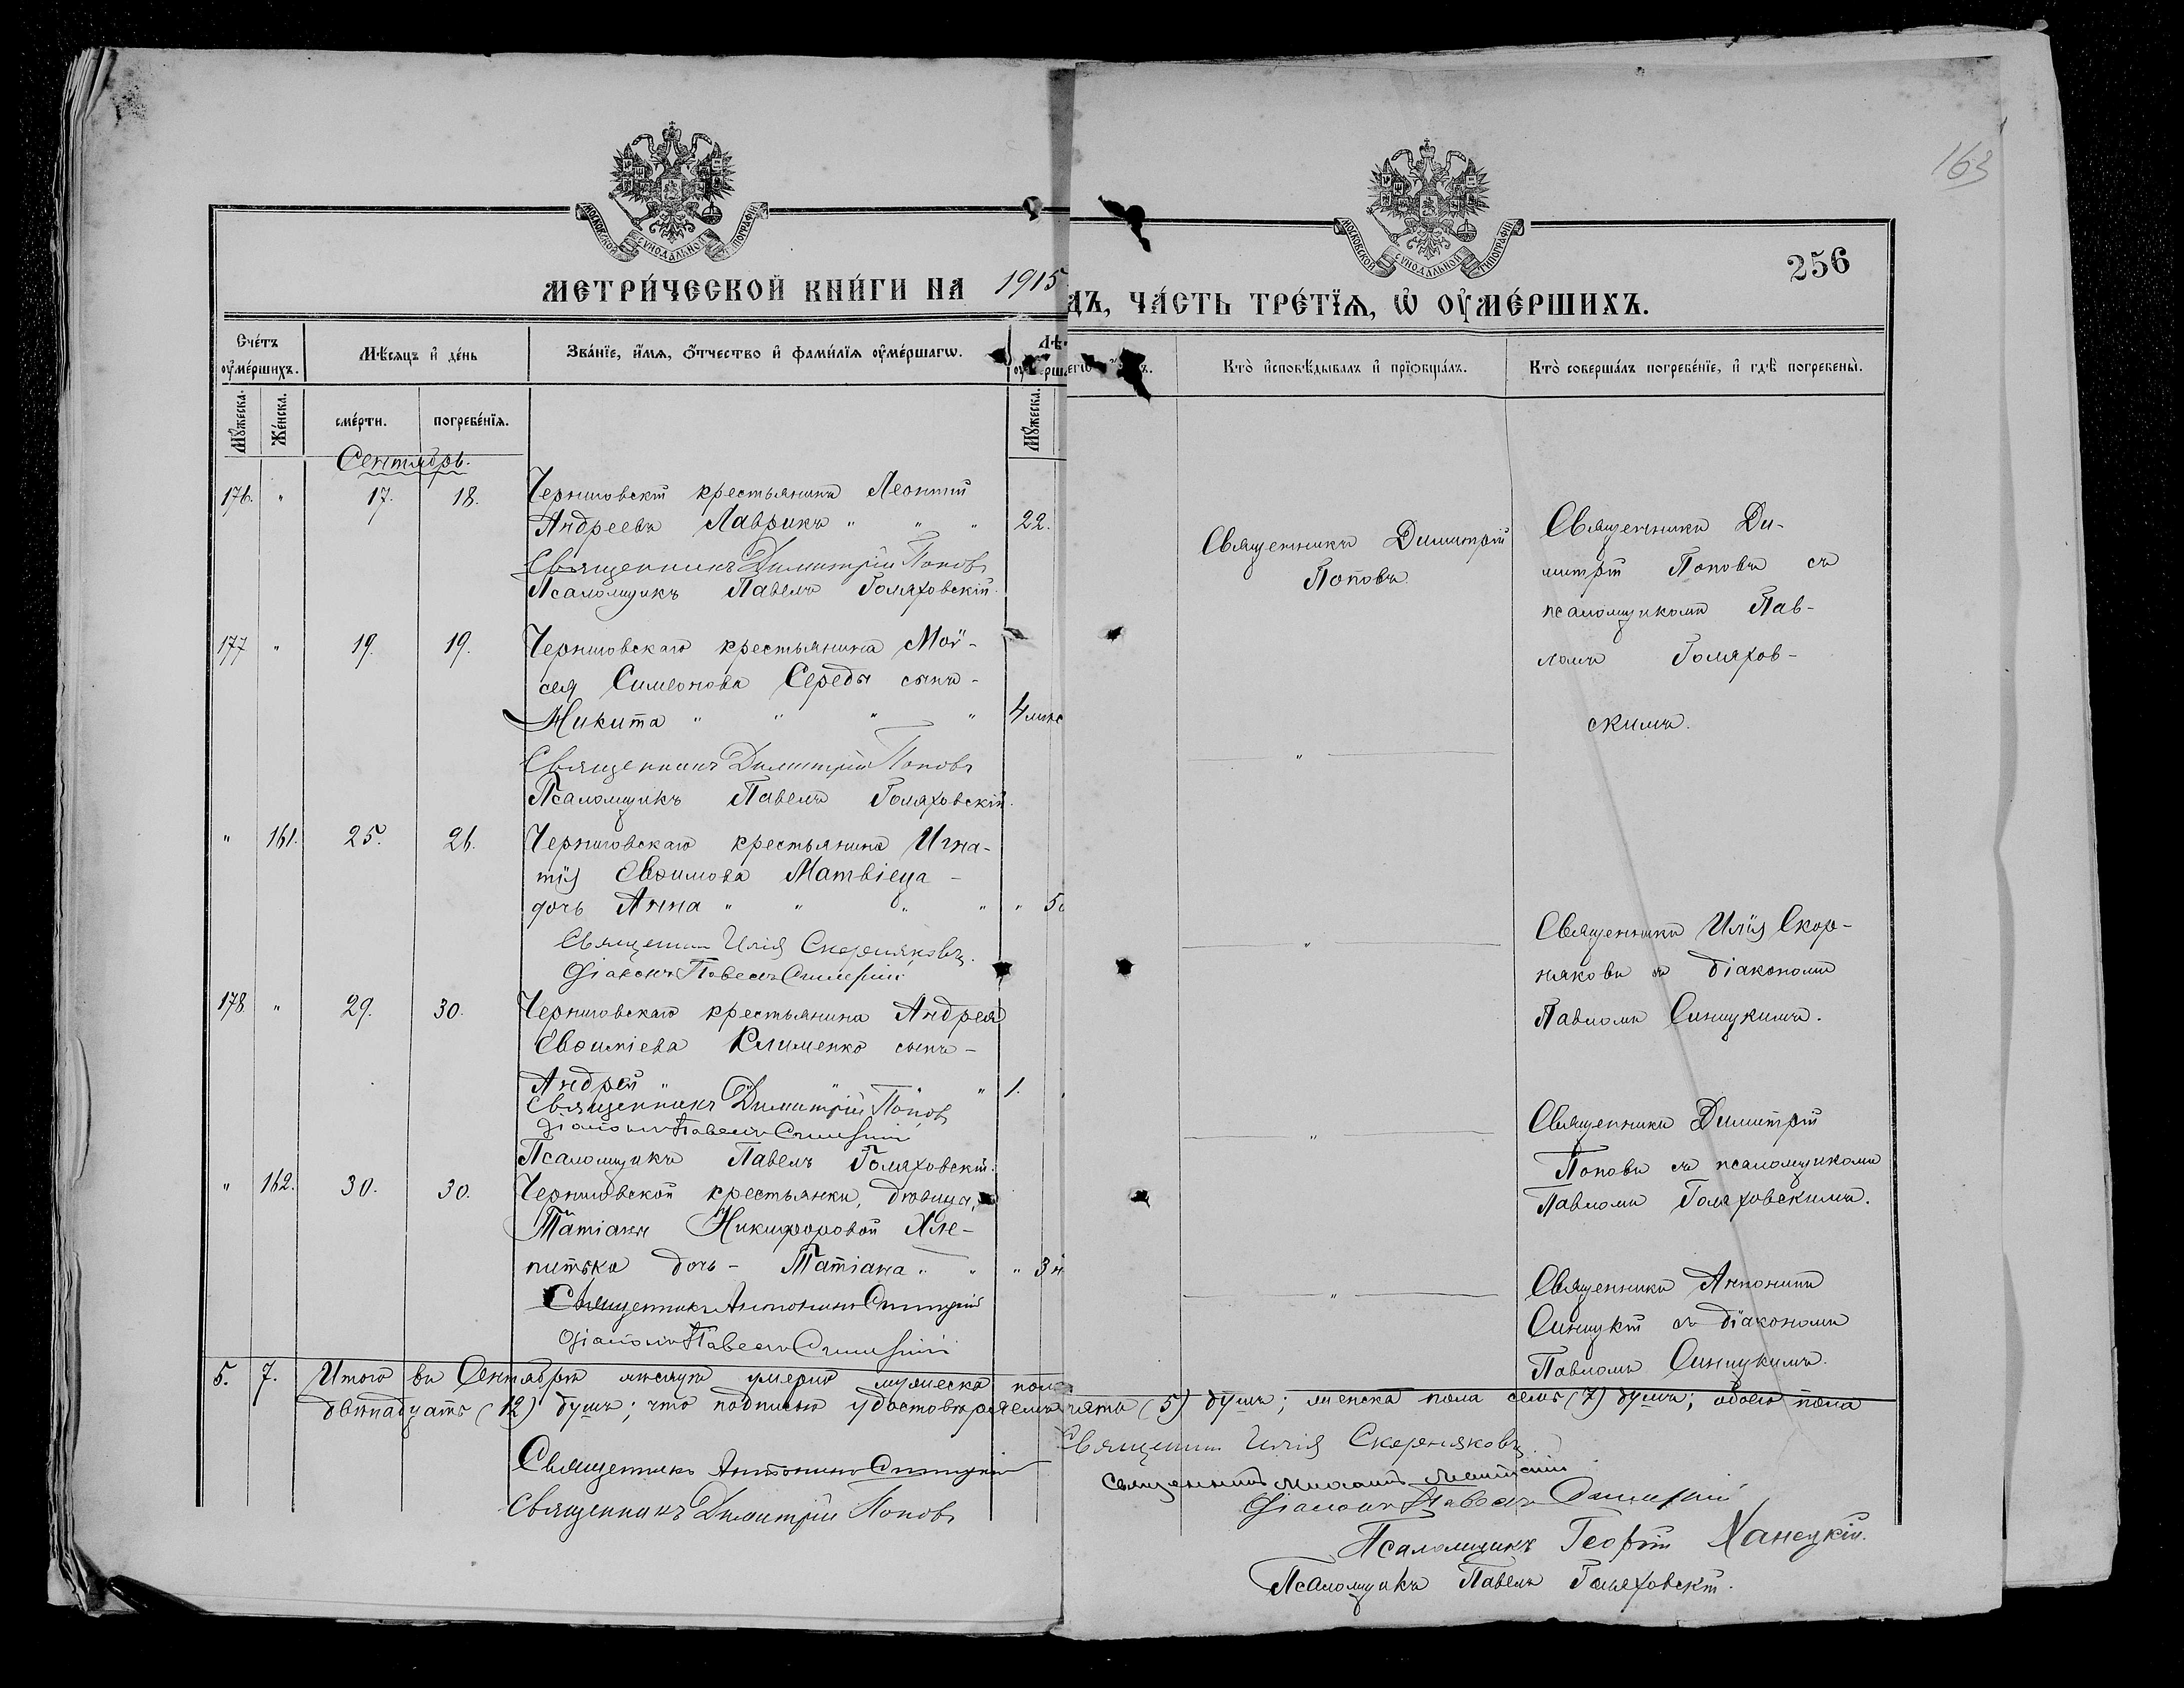 163
256
МОСКОВСКОЙ СѴНОДАЛЬНОЙ ТИПОГРАФІИ
МЕТРИ́ЧЕСКОЙ КНИ́ГИ НА 1915
ДЪ, ЧА́СТЬ ТРЕ́ТЇѦ, Ѡ ОУМЕ́РШИХЪ.
Сче́тъ оуме́ршихъ.
Мѣ́сяцъ и де́нь
Зва́нїе, и́мя, о́тчество и фами́лїя оуме́ршагѡ.
Кто̀ исповѣ́дывалъ и прїобща́лъ.
Кто̀ соверша́лъ погребе́нїе, и гдѣ̀ погребены̀.
Му́жеска.
Же́нска.
сме́рти.
погребе́нїя.
Му́жеска.
Сентябрь.
176. " 17. 18. Черниговскій крестьянинъ Леонтій
Андреевъ Лаврикъ " " " 22.
Священникъ Димитрій Поповъ
Псаломщикъ Павелъ Голяховскій.
Священникъ Димитрій
Поповъ
Священникъ Ди-
митрій Поповъ съ
псаломщикомъ Пав-
ломъ Голяхов-
скимъ.
177 " 19. 19. Черниговскаго крестьянина Мой-
сея Симеонова Середы сынъ -
Никита " " " " 4 мѣс
Священникъ Димитрій Поповъ
Псаломщикъ Павелъ Голяховскій.
"
" 161. 25. 26. Черниговскаго крестьянина Игна-
тія Евѳимова Матвіеца -
дочь Анна " " " " " 5
Священникъ Илія Скорняковъ.
Діаконъ Павелъ Синицкій
"
Священникъ Илія Скор-
няковъ съ діакономъ
Павломъ Синицкимъ.
178 " 29. 30. Черниговскаго крестьянина Андрея
Евѳиміева Клименко сынъ -
Андрей " " " 1.
Священникъ Димитрій Поповъ
Діаконъ Павелъ Синицкій
Псаломщикъ Павелъ Голяховскій.
"
Священникъ Димитрій
Поповъ съ псаломщикомъ
Павломъ Голяховскимъ.
" 162. 30. 30. Черниговской крестьянки, дѣвицы,
Татіаны Никифоровой Хле-
питько дочь - Татіана " " " 3 н
Священникъ Антонинъ Синицкій
Діаконъ Павелъ Синицкій
"
Священникъ Антонинъ
Синицкій съ діакономъ
Павломъ Синицкимъ.
5. 7. Итого въ Сентябрѣ мѣсяцѣ умерло мужеска пола
пять (5) душъ; женска пола семь (7) душъ; обоего пола
двѣнадцать (12) душъ; что подписью удостовѣряемъ
Священникъ Антонинъ Синицкій
Священникъ Димитрій Поповъ
Священникъ Илія Скорняковъ.
Священникъ
Діаконъ Павелъ Синицкій
Псаломщикъ Георгій Ханецкій.
Псаломщикъ Павелъ Голяховскій.